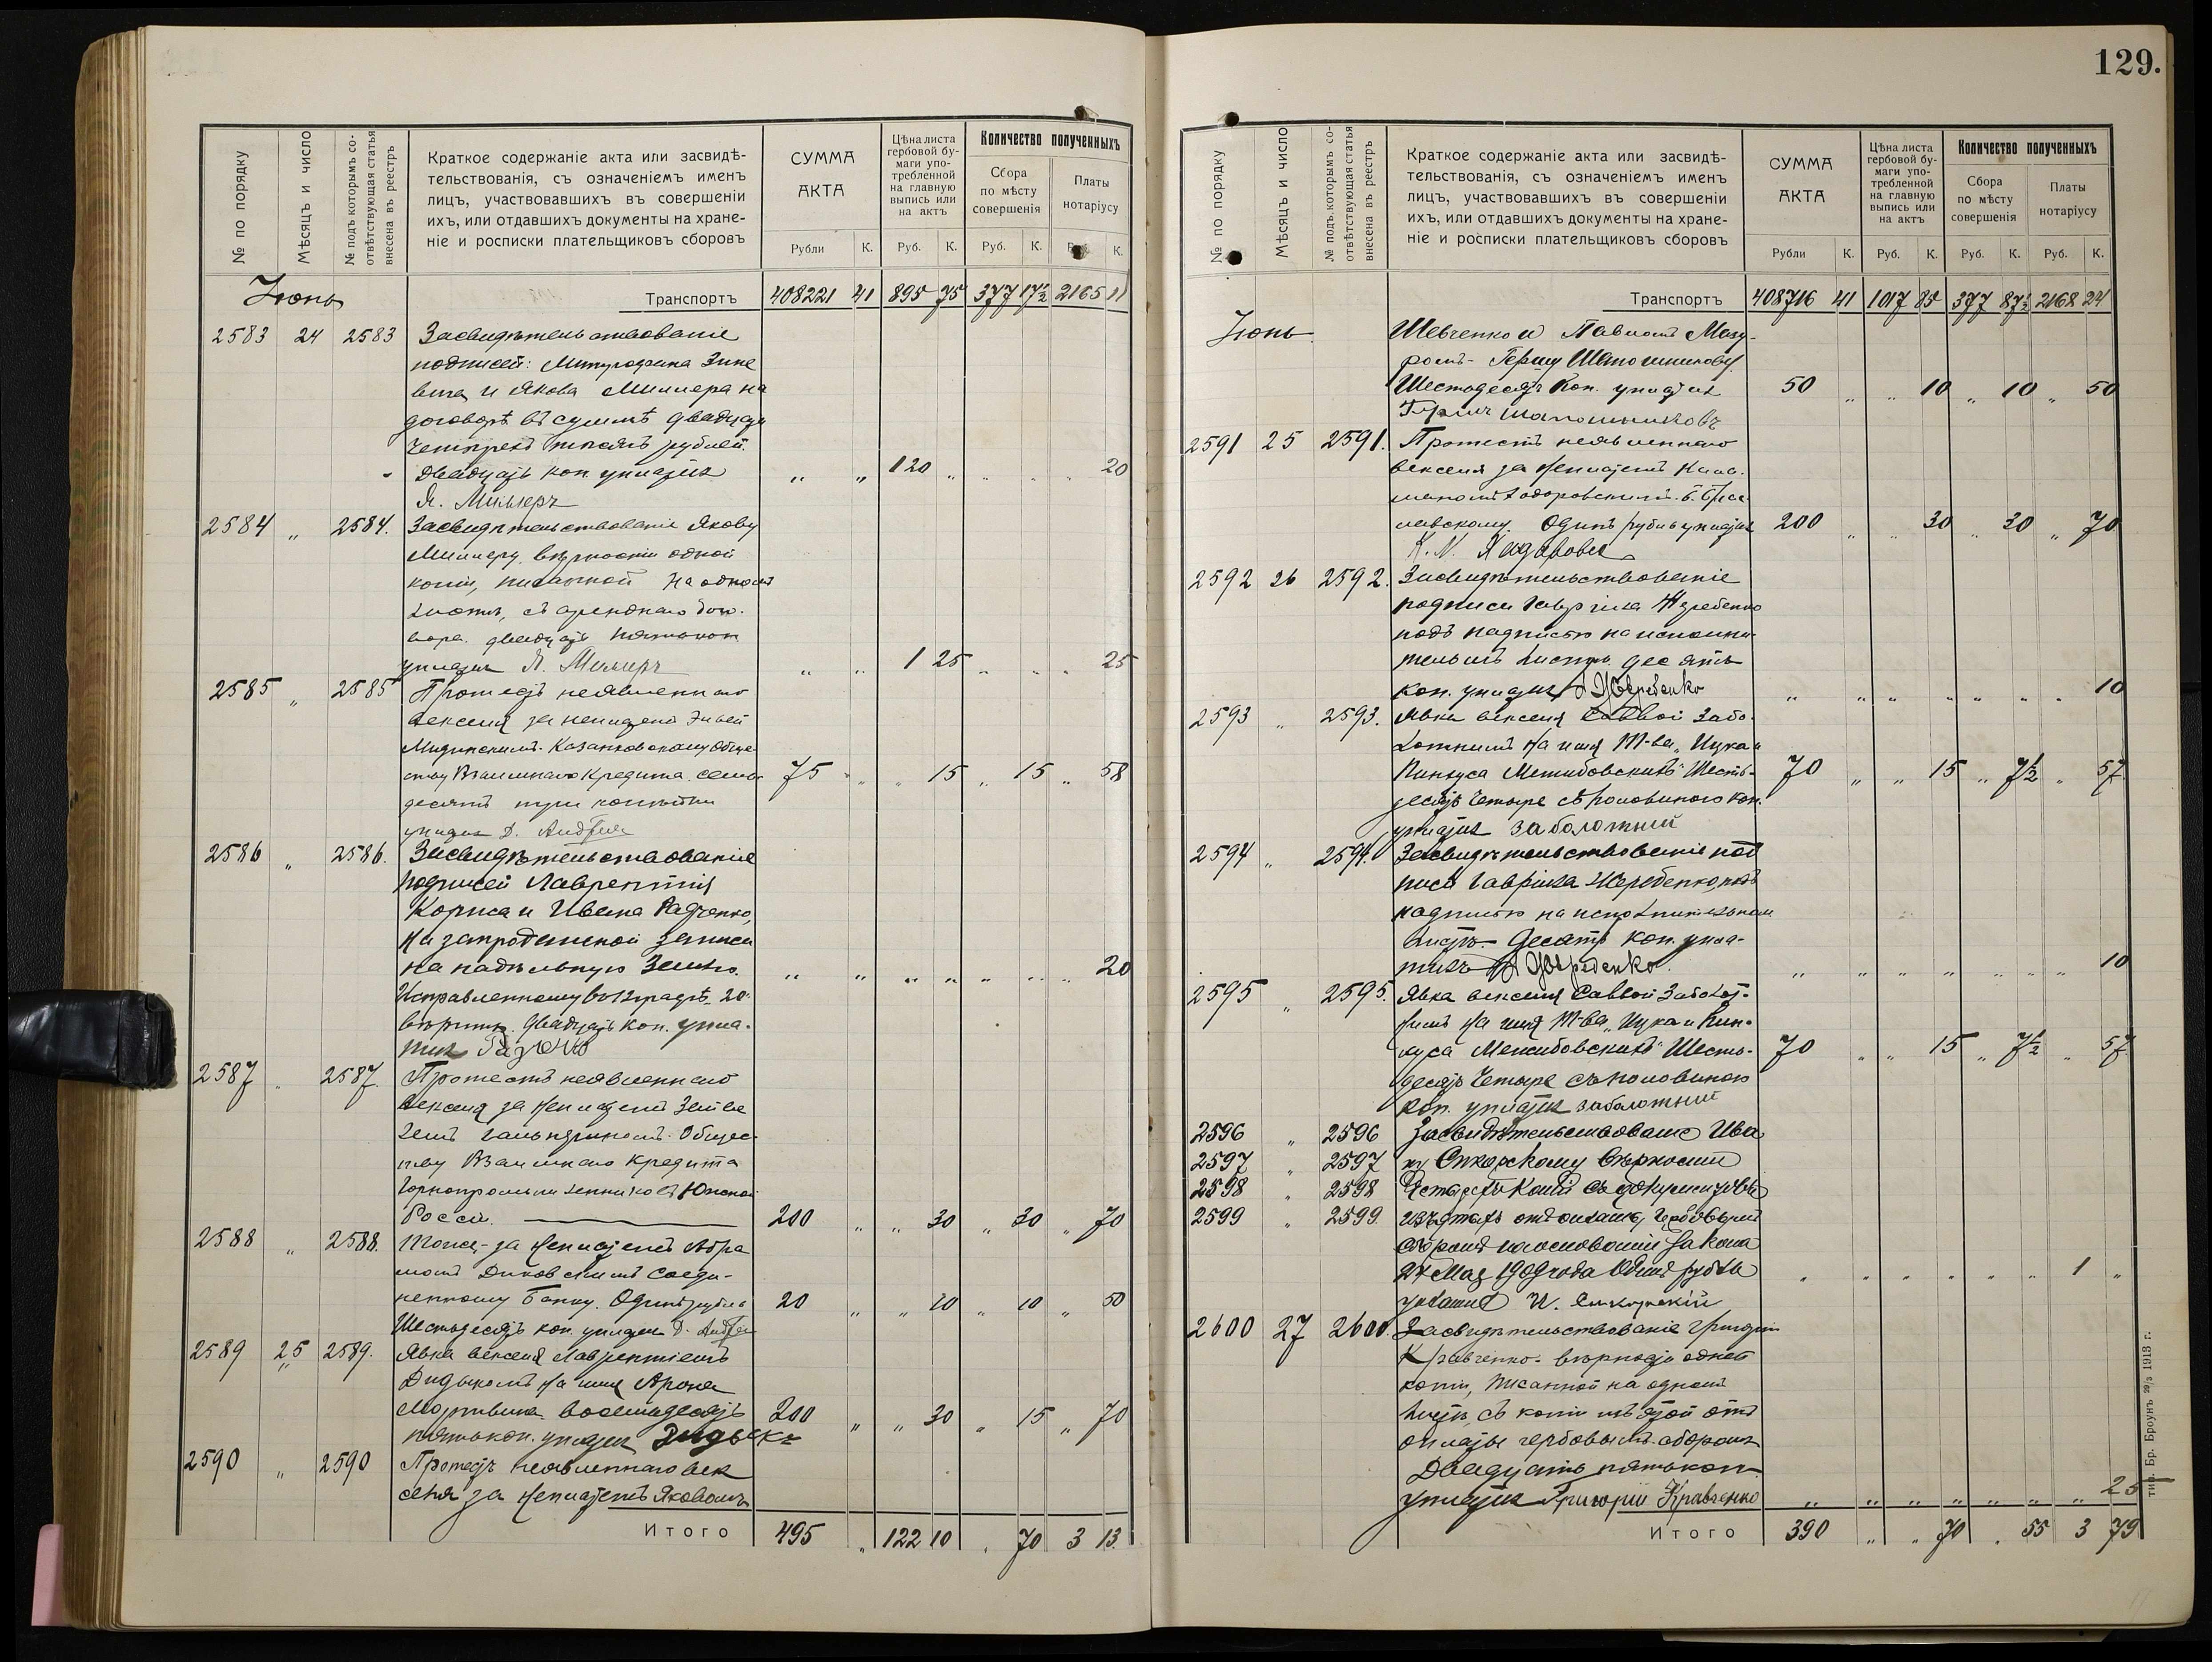 129.
№ по порядку
Мѣсяцъ и число
№ подъ которымъ со-
отвѣтствующая статья
внесена въ реестръ
Краткое содержаніе акта или засвидѣ-
тельствованія, съ означеніемъ именъ
лицъ, участвовавшихъ въ совершеніи
ихъ, или отдавшихъ документы на хране-
ніе и росписки плательщиковъ сборовъ
СУММА
АКТА
Рубли К.
Цѣна листа
гербовой бу-
маги упо-
требленной
на главную
выпись или
на актъ
Руб. К.
Количество полученныхъ
Сбора
по мѣсту
совершенія
Руб. К.
Платы
нотаріусу
К.
Іюнь Транспортъ 408221 41 895 75 377 17½ 2165 11
2583 24 2583 Засвидѣтельствованіе
подписей:
и Якова Миллера на
договорѣ въ суммѣ двадцати
четырехъ тысячъ рублей.
Двадцать коп. уплатилъ „ „ 120 „ „ „ „ 20
Я. Миллеръ
2584 „ 2584. Засвидѣтельствованіе Якову
Миллеру вѣрности одной
копіи, писанной на одномъ
листѣ, съ аренднаго дого-
вора. двадцать пять коп
уплатилъ Я. Миллеръ „ „ 1 25 „ „ „ 25
2585 „ 2585 Протестъ неявленнаго
векселя за неплатежъ
Казанковскому Обще-
ству Взаимнаго Кредита. семь-
десятъ три копейки 75 „ „ „ 15 „ 15 „ 58
уплатилъ Д.
2586 „ 2586. Засвидѣтельствованіе
подписей Лаврентія
Корниса и Ивана Радченко,
на запродажной записи
на надѣльную землю. „ „ „ „ „ „ „ 20
Исправленному въ 12 градѣ. 20.
вѣрить. Двадцать коп. упла-
тилъ
2587 „ 2587. Протестъ неявленнаго
векселя за неплатежъ
Общес-
тву Взаимнаго Кредита
Горнопромышленниковъ Южной
Россіи. 200 „ „ 30 „ 30 „ 70
2588 „ 2588. Тоже, за неплатежъ Абра
момъ Соеди-
ненному Банку. Одинъ рубль 20 „ „ 10 „ 10 „ 50
Шестьдесятъ коп. уплатилъ Д.
2589 25 2589. Явка векселя Лаврентіемъ
Дидыкомъ на имя Арона
восемьдесятъ 200 „ „ 30 „ 15 „ 70
пять коп. уплатилъ Дидыкъ
2590 „ 2590 Протестъ неявленнаго век
селя за неплатежъ Яковомъ
Итого 495 „ 122 10 „ 70 3 13.
№ по порядку
Мѣсяцъ и число
№ подъ которымъ со-
отвѣтствующая статья
внесена въ реестръ
Краткое содержаніе акта или засвидѣ-
тельствованія, съ означеніемъ именъ
лицъ, участвовавшихъ въ совершеніи
ихъ, или отдавшихъ документы на хране-
ніе и росписки плательщиковъ сборовъ
СУММА
АКТА
Рубли К.
Цѣна листа
гербовой бу-
маги упо-
требленной
на главную
выпись или
на актъ
Руб. К.
Количество полученныхъ
Сбора
по мѣсту
совершенія
Руб. К.
Платы
нотаріусу
Руб. К.
Транспортъ 408716 41 1017 85 377 87½ 2168 24
Іюнь Шевченко и Павломъ Мазу-
ромъ- Гершу Шапошникову
Шестьдесятъ коп. уплатилъ 50 „ „ 10 „ 10 „ 50
Шапошниковъ
2591 25 2591. Протестъ неявленнаго
векселя за неплатежъ
Одинъ рубль уплатилъ 200 „ „ 30 „ 30 „ 70
2592 26 2592. Засвидѣтельствованіе
подписи Гавріила Жеребенко
подъ надписью на исполни-
тельномъ листѣ. десять
коп. уплатилъ Жеребенко „ „ „ „ „ „ „ 10
2593 „ 2593. Явка векселя Саввой Забо-
лотнимъ на имя Т-ва „Ицка и
Пинкуса Межибовскихъ" Шесть- 70 „ „ 15 „ 7½ „ 57
десятъ четыре съ половиною коп.
уплатилъ заболотний
2594 „ 2594. Засвидѣтельствованіе под
писи Гавріила Жеребенко, подъ
надписью на исполнительном
листѣ. Десять коп. упла-
тилъ Жеребенко. „ „ „ „ „ „ „ 10
2595 „ 2595. Явка векселя Саввой Заболот-
нимъ на имя Т-ва „Ицка и Пин-
куса Межибовскихъ" Шесть- 70 „ „ 15 „ 7½ „ 57
десятъ четыре съ половиною
коп. уплатилъ заболотний
2596 „ 2596 Засвидѣтельствованіе Ива
2597 „ 2597 ну вѣрности
2598 „ 2598 четырехъ копій съ документовъ
2599 „ 2599. изъятыхъ отъ оплаты гербовымъ
сборомъ на основаніи закона
27 Мая 1909 года Одинъ рубль „ „ „ „ „ „ 1 „
уплатилъ И.
2600 27 2600. Засвидѣтельствованіе Григорію
Кравченко- вѣрности одной
копіи, писанной на одномъ
листѣ, съ копіи изъятой отъ
оплаты гербовымъ сборомъ
Двадцать пять коп
уплатилъ Григорій Кравченко „ „ „ „ „ „ „ 25
Итого 390 „ „ 70 „ 55 3 79
тип. Бр. Броунъ 29/3 1913 г.